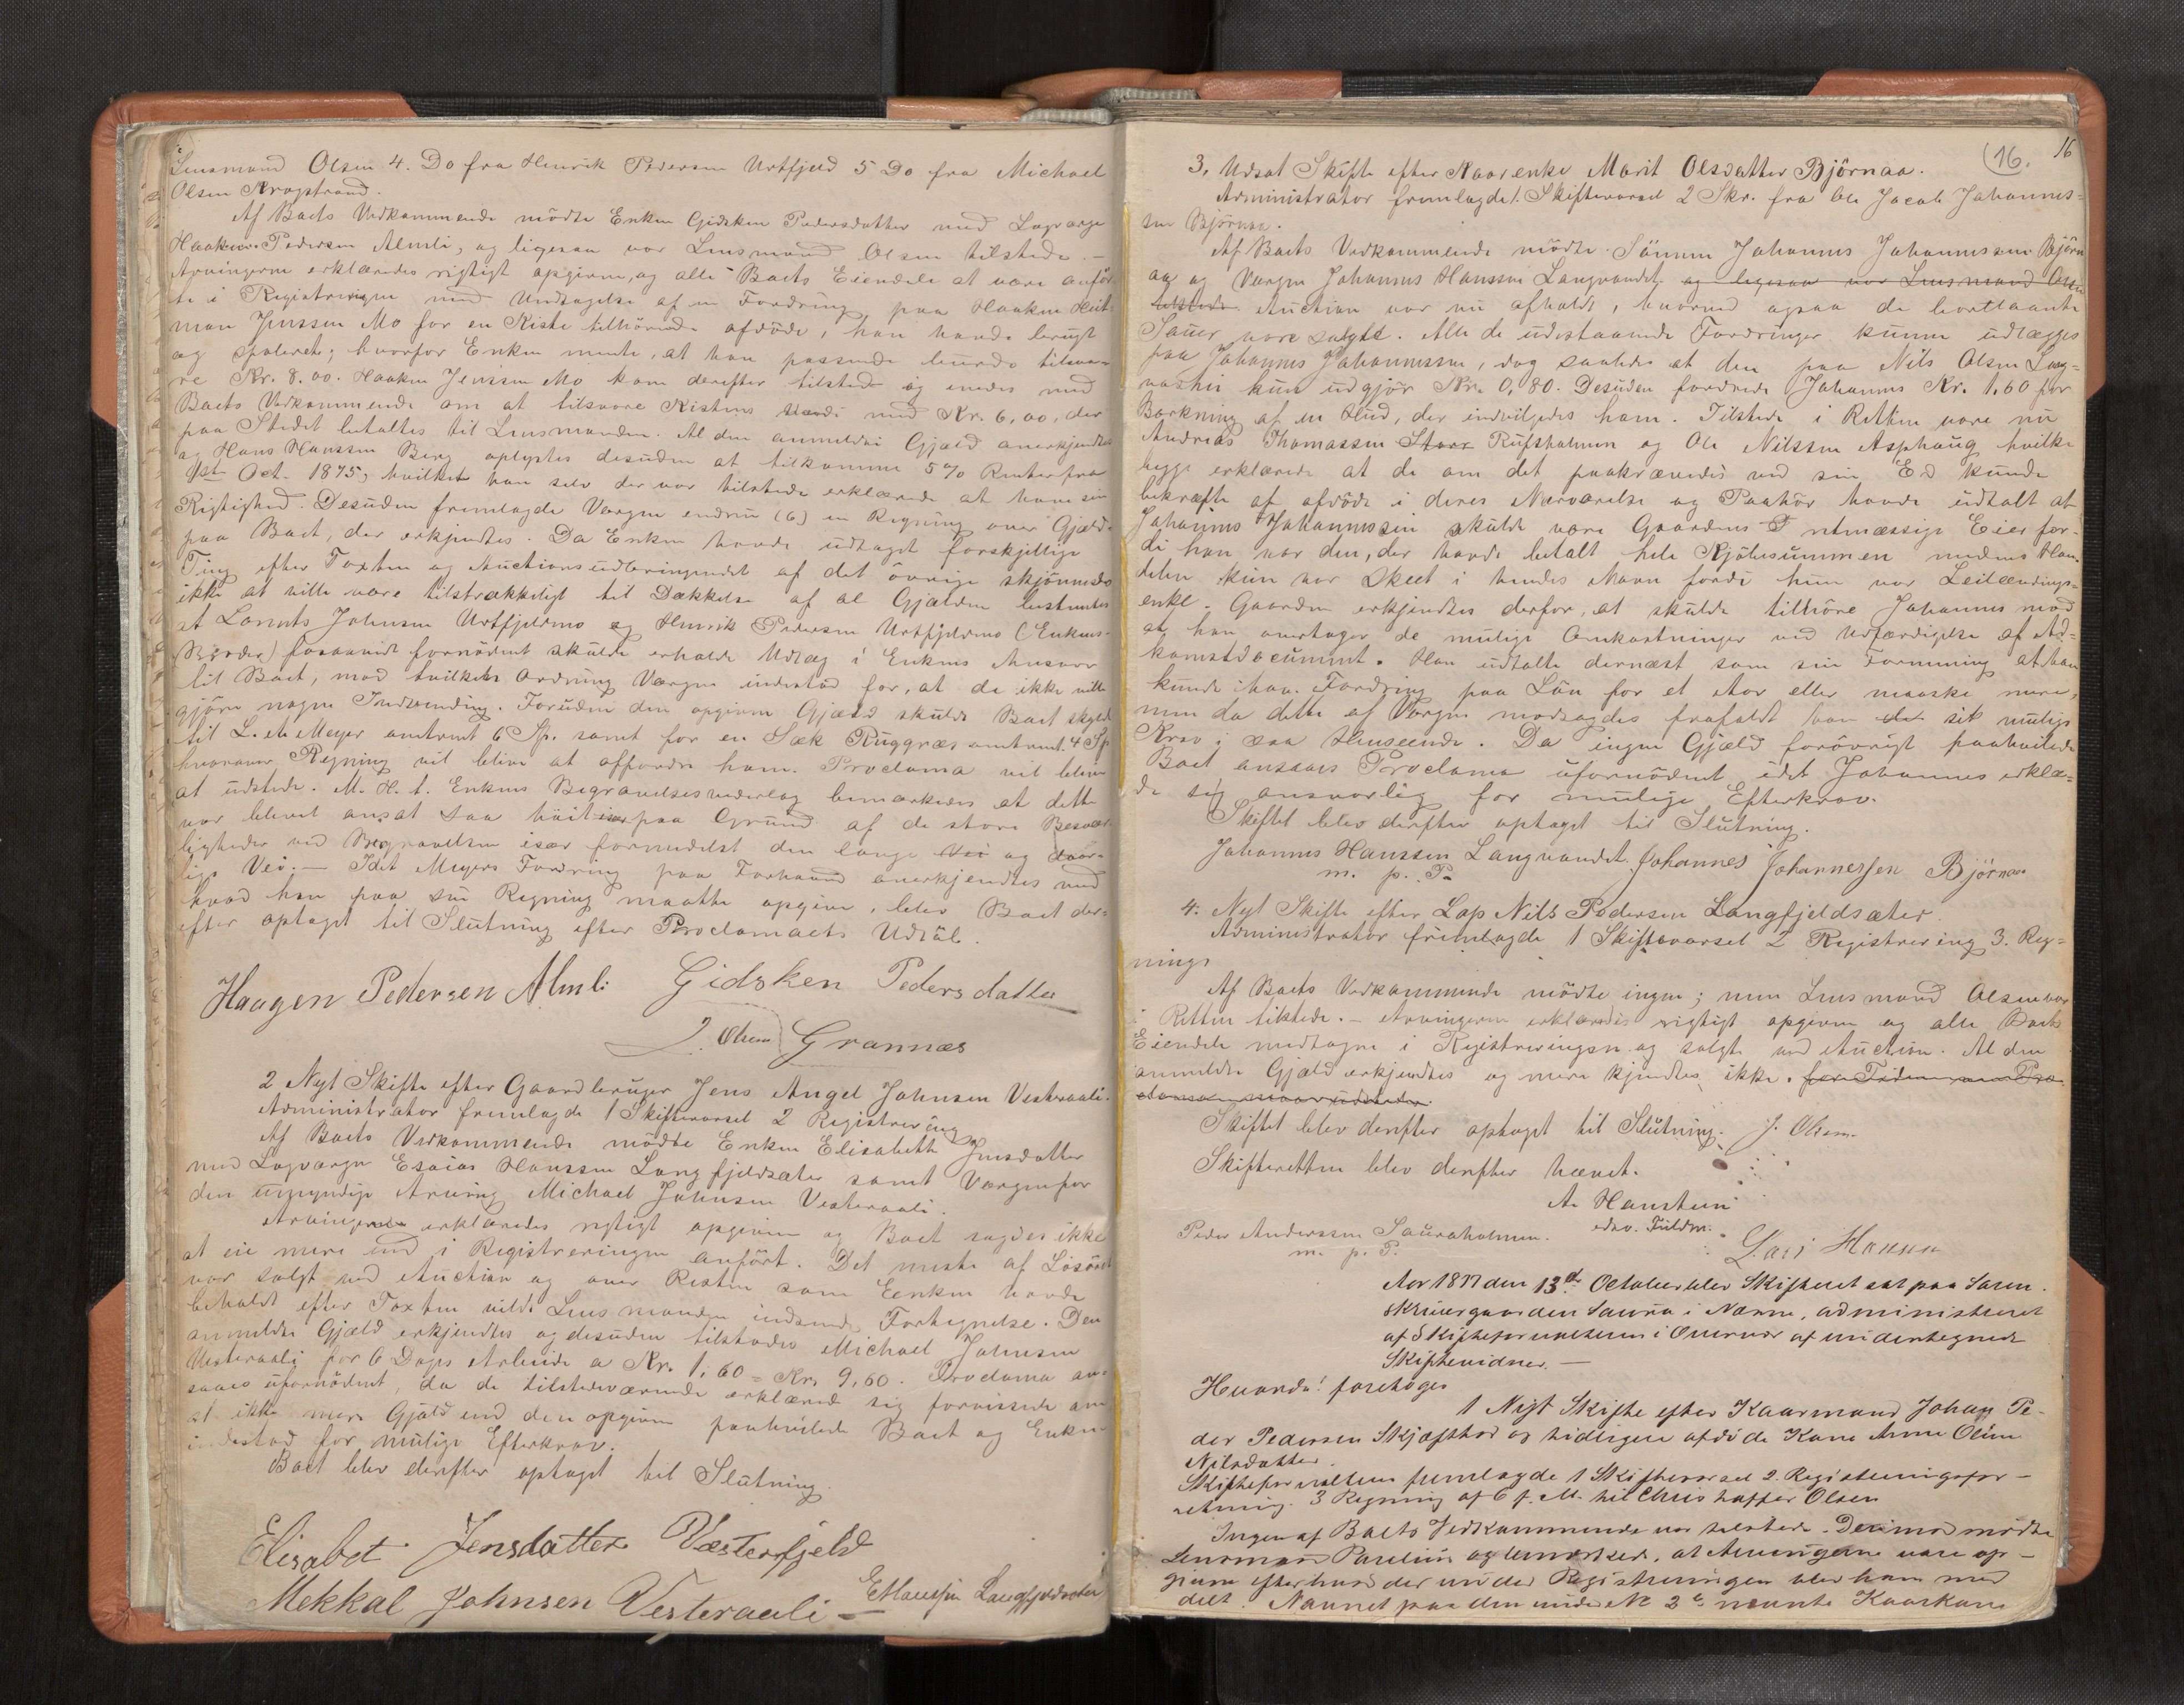 Lensmand Olsen 4. Do fra Henrik Pedersen Urtfjeld 5 Do fra Michael
Olsen Krogstrand.
Af Boets Vedkommende mödte Enken Gidsken Pedersdatter med Lagværge
Haaken Pedersen Almli, og ligesaa var Lensmand Olsen tilstede. -
Arvingerne erklæredes rigtigt opgivne, og alle Boets Eiendele at være anför
te i Registreringen med Undtagelse af en Fordring paa Haaken Heit-
man Jenssen Mo for en Kiste tilhörende afdöde, han havde brugt
og spoleret; hvorfor Enken mente, at han passende burde tilsva-
re Kr. 8.00. Haaken Jenssen Mo kom derefter tilstede og enedes med
Boets Vedkommende om at tilsvare Kistens Værdi med Kr. 6,00, der
paa Stedet betaltes til Lensmanden. Al den anmeldte Gjæld anerkjendtes
og Hans Hanssen Berg oplystes desuden at tilkomme 5% Renter fra
1ste Oct. 1875, hvilket han selv der var tilstede erklærede at have sin
Rigtighed. Desuden fremlagde Værgen endnu (6) en Regning over Gjæld
paa Boet, der erkjendtes. Da Enken havde udtaget forskjellige
Ting efter Taxten og Auctionsudbringendet af det övrige skjönnedes
ikke at ville være tilstrækkeligt til Dækkelse af al Gjælden bestemtes
at Lornts Johnsen Urtfjeldmo og Henrik Pedersen Urtfjeldmo (Enkens
Broder) forsaavidt fornödent skulde erholde Udlæg i Enkens Ansvar
til Boet, mod hvilken Ordning Værgen indestod for, at de ikke vilde
gjöre nogen Indvending. Foruden den opgivne Gjæld skulde Boet skylde
til L. A. Meyer omtrent 6 Sp. samt for en Sæk Ruggræs omtrent 4 Sp
hvorover Regning vil blive at affordre ham. Proclama vil blive
at udstede. M. H. t. Enkens Begravelsesvederlag bemærkedes at dette
var blevet ansat saa höit paa Grund af de store Besvær-
ligheder ved Begravelsen især formedelst den lange Vei og daar-
lige Vei. - Idet Meyers Fordring paa Forhaand anerkjendtes med
hvad han paa sin Regning maatte opgive, blev Boet der-
efter optaget til Slutning efter Proclamaets Udlöb.
Haagen Pedersen Almli Gidsken Pedersdatter
J. Olsen Grannæs
2 Nyt Skifte efter Gaardbruger Jens Angel Johnsen Vesteraali.
Administrator fremlagde 1 Skiftevarsel 2 Registrering
Af Boets Vedkommende mödte Enken Elisabeth Jensdatter
med Lagværge Esaias Hanssen Langfjeldsæter samt Værgen for
den umyndige Arving Michael Johnsen Vesteraali.
Arvingerne erklæredes rigtigt opgivne og Boet sagdes ikke
at eie mere end i Registreringen anført. Det meste af Lösöret
var solgt ved Auction og over Resten som Enken havde
beholdt efter Taxten vilde Lensmanden indsende Fortegnelse. Den
anmeldte Gjæld erkjendtes og desuden tilstodes Michael Johnsen
Vesteraali for 6 Dages Arbeide a Kr. 1,60 = Kr. 9,60. Proclama an-
saaes ufornödent, da de tilstedeværende erklærede sig forvissede om
at ikke mere Gjæld end den opgivne paahvilede Boet og Enken
indestod for mulige Efterkrav.
Boet blev derefter optaget til Slutning.
Elisabet Jensdatter Vesterfjeld
Mekkal Johnsen Vesteraali - EHanssen Langfjeldsæter
(16. 16
3. Udsat Skifte efter Kaarenke Marit Olsdatter Björnaa.
Administrator fremlagde 1. Skiftevarsel 2 Skr. fra Ole Jacob Johannes-
sen Björnaa.
Af Boets Vedkommende mödte Sönnen Johannes Johannessen Björn
aa og Værgen Johannes Hanssen Langvandet og ligesaa var Lensmand Olsen
tilstede Auction var nu afholdt, hvorved ogsaa de bortlaante
Sauer vare solgte. Alle de udestaaende Fordringer kunne udlægges
paa Johannes Johannessen, dog saaledes at den paa Nils Olsen
kun udgjör Kr. 0,80. Desuden fordrede Johannes Kr. 1.60 for
Barkning af en Hud, der indvilgedes ham. Tilstede i Retten vare nu
Andreas Thomassen Stor Rufsholmen og Ole Nilssen Asphaug hvilke
begge erklærede at de om det paakrævedes ved sin Ed kunde
bekræfte at afdöde i deres Nærværelse og Paahör havde udtalt at
Johannes Johannessen skulde være Gaardens retmæssige Eier for-
di han var den, der havde betalt hele Kjöbesummen medens Han-
delen kun var skeet i hendes Navn fordi hun var Leilændings-
enke. Gaarden erkjendtes derfor, at skulde tilhöre Johannes mod
at han overtager de mulige Omkostninger ved Udfærdigelse af Ad-
komstdocument. Han udtalte dernæst som sin Formening at han
kunde have Fordring paa Lön for et Aar eller maaske mere,
men da dette af Værgen modsagdes frafaldt han det sit mulige
Krav i saa Henseende. Da ingen Gjæld forövrigt paahvilede
Boet ansaaes Proclama ufornödent idet Johannes erklæ-
de sig ansvarlig for mulige Efterkrav.
Skiftet blev derefter optaget til Slutning.
Johannes Hanssen Langvandet. Johannes Johannessen Björnaa
m. p. P.
4. Nyt Skifte efter Lap Nils Pedersen Langfjeldsæter.
Administrator fremlagde 1 Skiftevarsel 2 Registrering 3. Reg-
nings
Af Boets Vedkommende mödte ingen; men Lensmand Olsen var
i Retten tilstede. - Arvingerne erklæredes rigtigt opgivne og alle Boets
Eiendele medtagne i Registreringen og solgte ved Auction. Al den
anmeldte Gjæld erkjendtes og mere kjendtes ikke.
Skiftet blev derefter optaget til Slutning. J. Olsen.
Skifteretten blev derefter hævet.
A. Hansteen
edsv. Fuldm.
Peder Anderssen Sauraholmen.
m. p. P.
Lars Hansen
Aar 1877 den 13de October blev Skifteret sat paa Soren-
skrivergaarden Saura i Næsne, administreret
af Skifteforvalteren i Overvær af undertegnede
Skiftevidner. -
Hvorda! foretoges
1 Nyt Skifte efter Kaarmand Johan Pe-
der Pedersen Skjæfthad og tidligere afdöde Kone Anne Oline
Nilsdatter.
Skifteforvalteren fremlagde 1 Skiftevarsel 2. Registreringsfor-
retning. 3 Regning af 6 f. M. til Christoffer Olsen
Ingen af Boets Vedkommende var tilstede. Derimod mödte
Lensmand og bemærkede, at Arvingerne vare op-
givne efter hvad der under Registreringen blev ham med
delt. Navnet paa den under No 2 nævnte Kaarkone